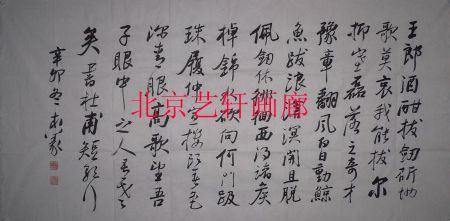 王郎酒酣拔劍斫地
歌莫哀我能拔尔
抑塞磊落之奇才
豫章翻风白日動鲸
魚跋浪滄溟開且脱
佩劍休徘徊西得诸侯
棹錦水欲向何门趿
珠履仲宣楼头春色
深青眼高歌望吾
子眼中之人吾老
矣 書杜甫短歌行
辛卯冬
北京艺轩画廊